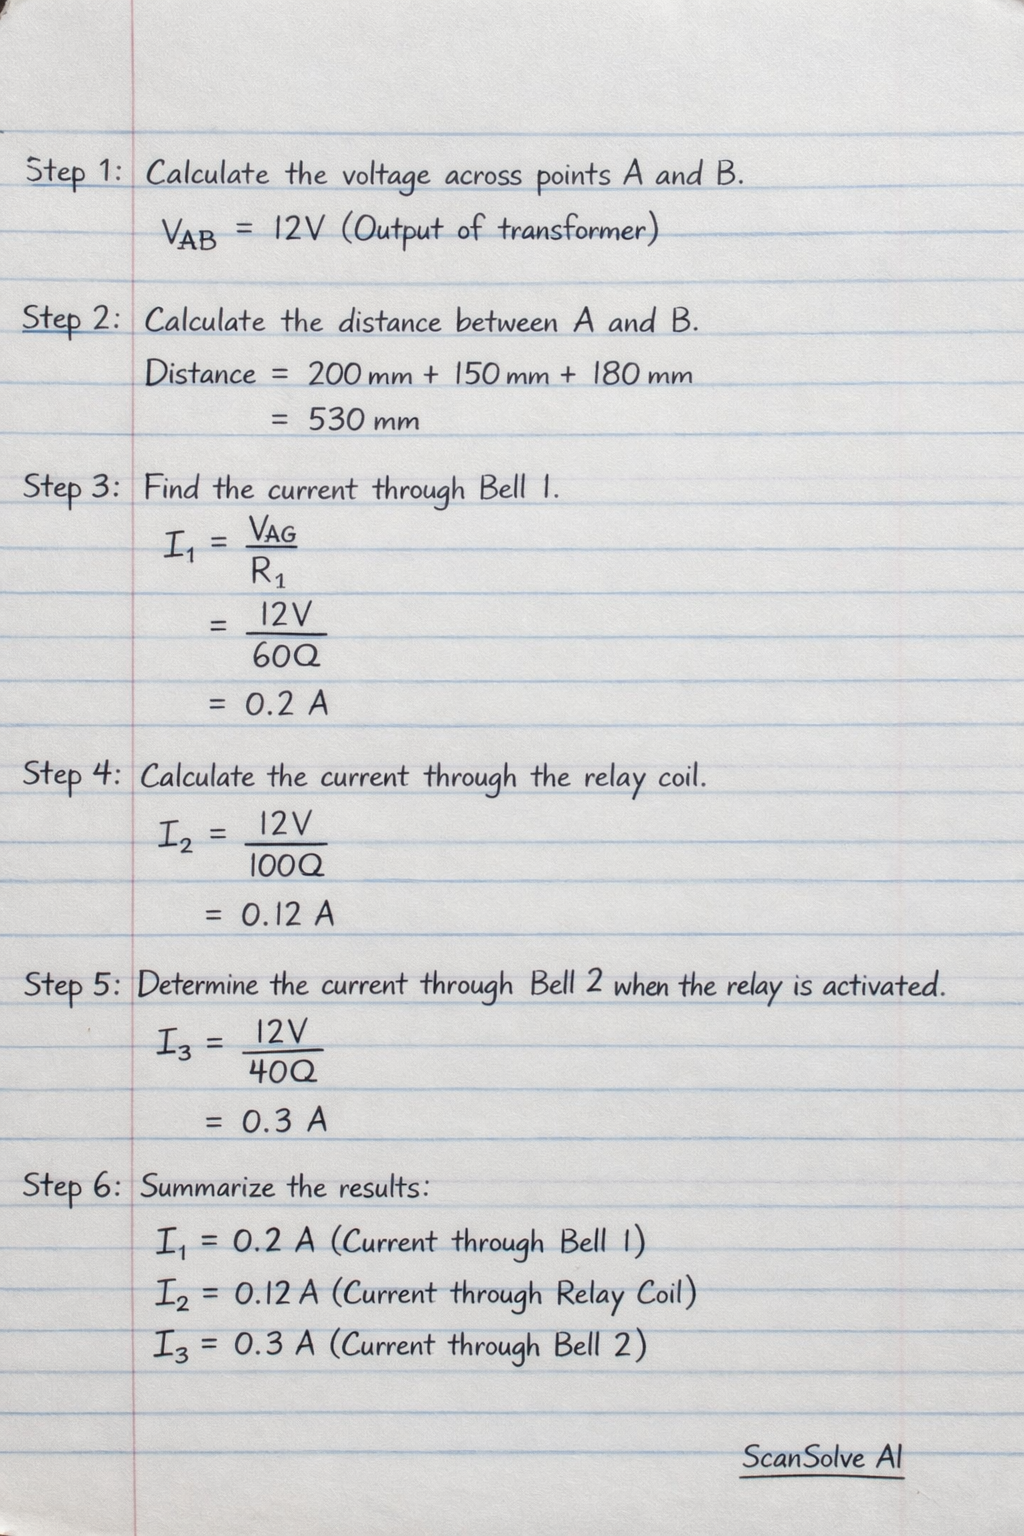 Step 1: Calculate the voltage across points A and B.
VAB = 12V (Output of transformer)
Step 2: Calculate the distance between A and B.
Distance = 200 mm + 150 mm + 180 mm
= 530 mm
Step 3: Find the current through Bell 1.
I1 = VAG
R1
= 12V
60Ω
= 0.2 A
Step 4: Calculate the current through the relay coil.
I2 = 12V
100Ω
= 0.12 A
Step 5: Determine the current through Bell 2 when the relay is activated.
I3 = 12V
40Ω
= 0.3 A
Step 6: Summarize the results:
I1 = 0.2 A (Current through Bell 1)
I2 = 0.12 A (Current through Relay Coil)
I3 = 0.3 A (Current through Bell 2)
ScanSolve AI